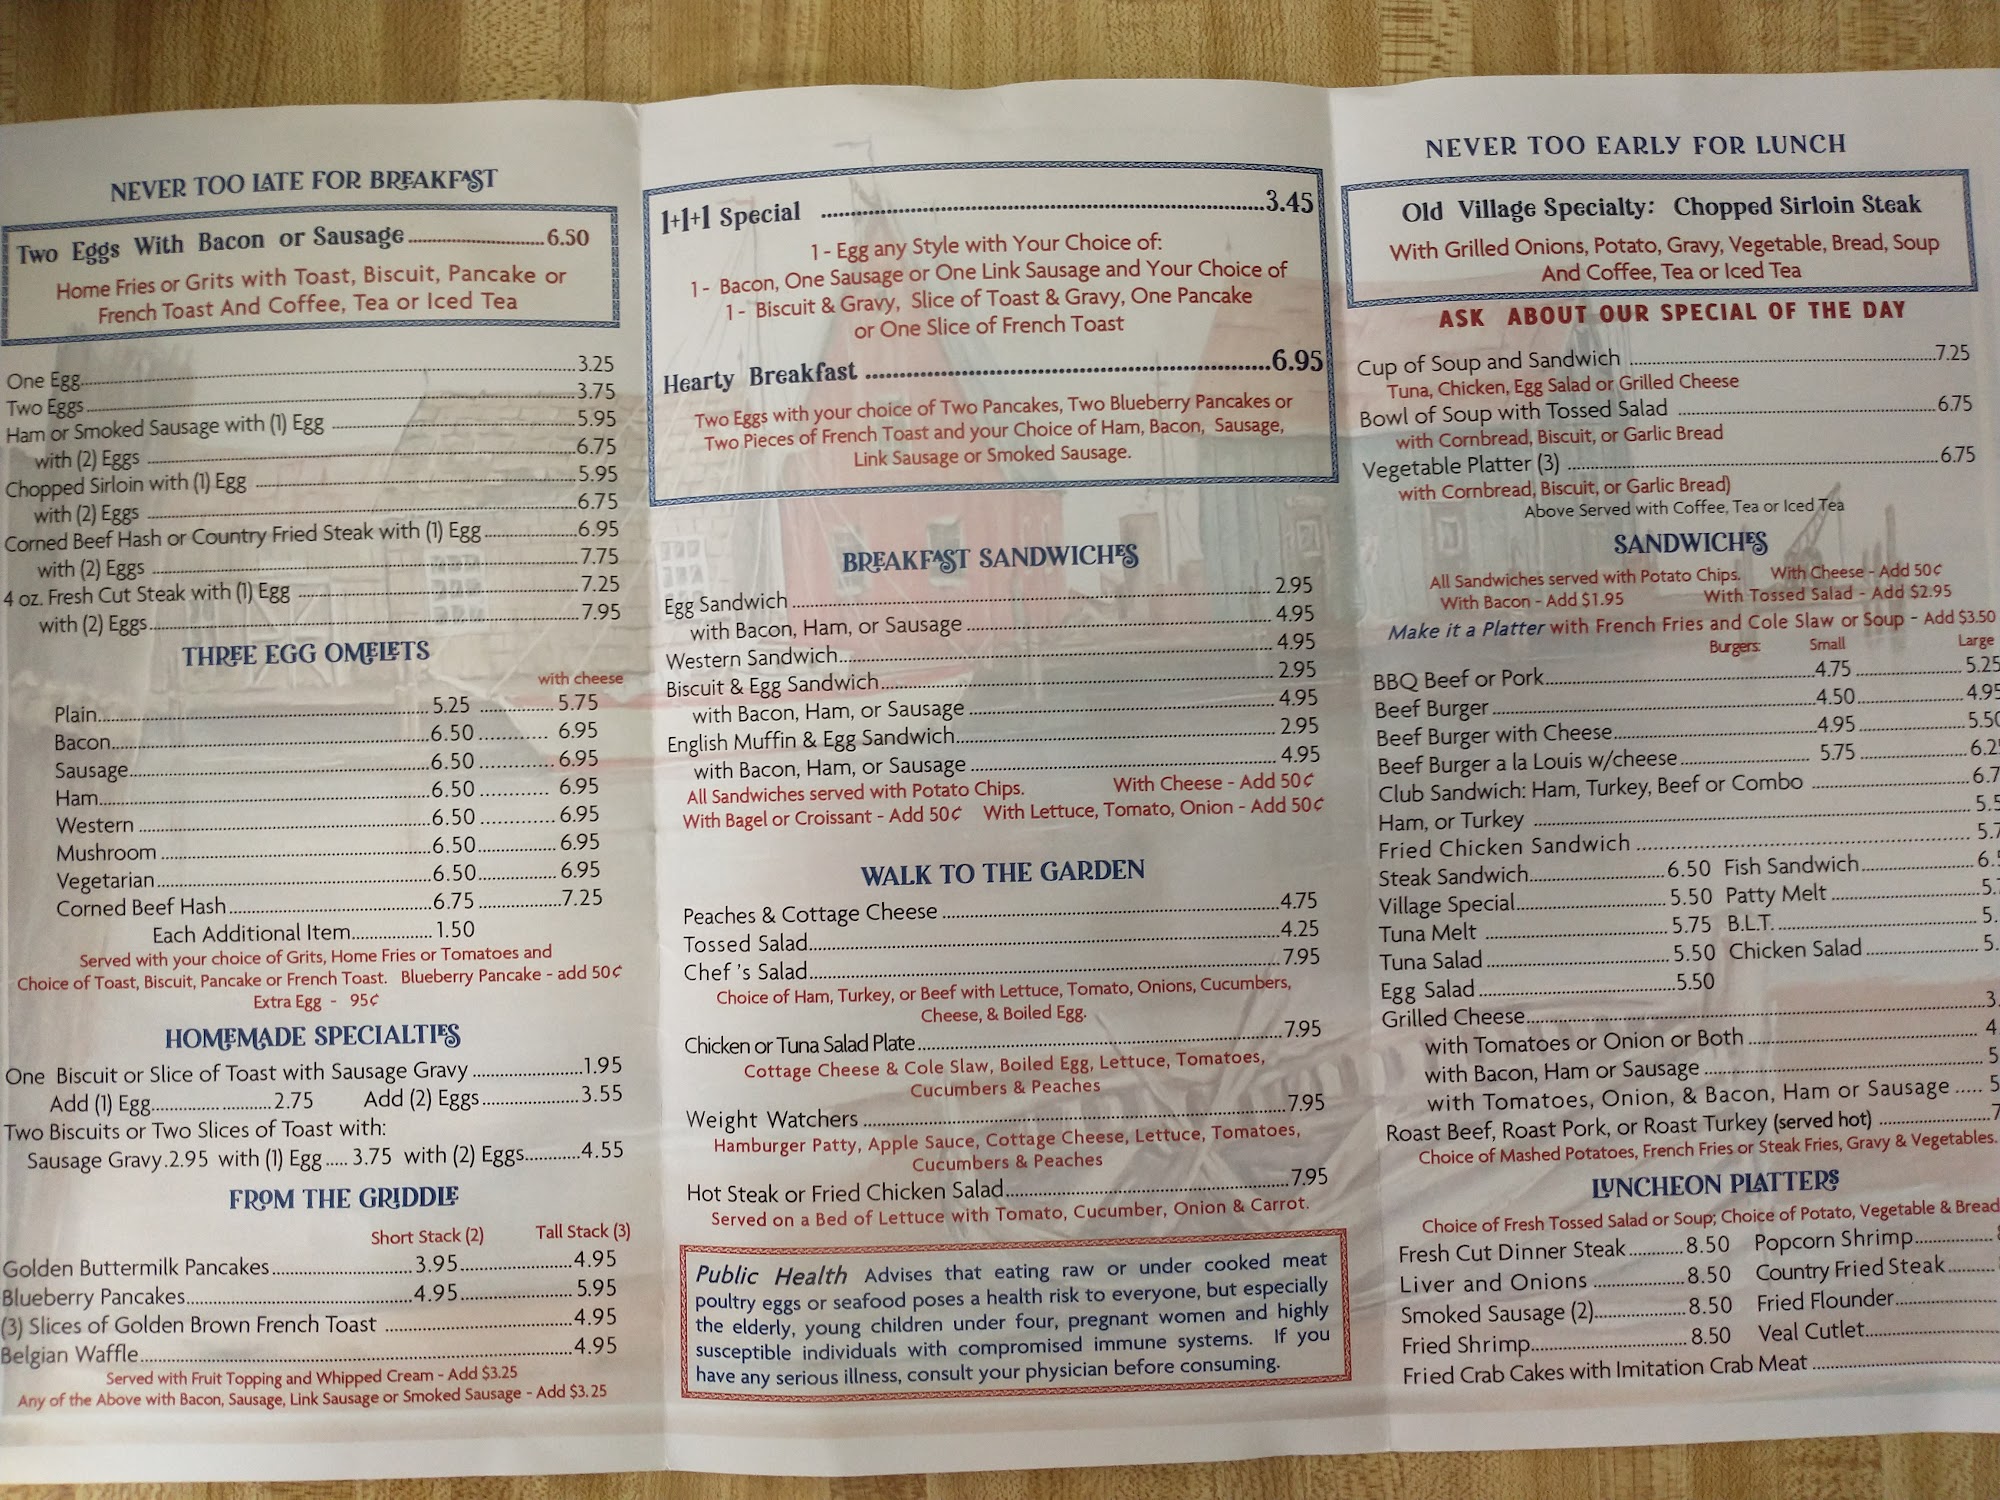 NEVER TOO LATE FOR BREAKFAST
Two Eggs With Bacon or Sausage 6.50
Home Fries or Grits with Toast, Biscuit, Pancake or
French Toast And Coffee, Tea or Iced Tea
One Egg 3.25
Two Eggs 3.75
Ham or Smoked Sausage with (1) Egg 5.95
with (2) Eggs 6.75
Chopped Sirloin with (1) Egg 5.95
with (2) Eggs 6.75
Corned Beef Hash or Country Fried Steak with (1) Egg 6.95
with (2) Eggs 7.75
4 oz. Fresh Cut Steak with (1) Egg 7.25
with (2) Eggs 7.95
THREE EGG OMELETS
with cheese
Plain 5.25 5.75
Bacon 6.50 6.95
Sausage 6.50 6.95
Ham 6.50 6.95
Western 6.50 6.95
Mushroom 6.50 6.95
Vegetarian 6.50 6.95
Corned Beef Hash 6.75 7.25
Each Additional Item 1.50
Served with your choice of Grits, Home Fries or Tomatoes and
Choice of Toast, Biscuit, Pancake or French Toast. Blueberry Pancake - add 50¢
Extra Egg - 95¢
HOMEMADE SPECIALTIES
One Biscuit or Slice of Toast with Sausage Gravy 1.95
Add (1) Egg 2.75 Add (2) Eggs 3.55
Two Biscuits or Two Slices of Toast with:
Sausage Gravy 2.95 with (1) Egg 3.75 with (2) Eggs 4.55
FROM THE GRIDDLE
Short Stack (2) Tall Stack (3)
Golden Buttermilk Pancakes 3.95 4.95
Blueberry Pancakes 4.95 5.95
(3) Slices of Golden Brown French Toast 4.95
Belgian Waffle 4.95
Served with Fruit Topping and Whipped Cream - Add $3.25
Any of the Above with Bacon, Sausage, Link Sausage or Smoked Sausage - Add $3.25
1+1+1 Special 3.45
1 - Egg any Style with Your Choice of:
1 - Bacon, One Sausage or One Link Sausage and Your Choice of
1 - Biscuit & Gravy, Slice of Toast & Gravy, One Pancake
or One Slice of French Toast
Hearty Breakfast 6.95
Two Eggs with your choice of Two Pancakes, Two Blueberry Pancakes or
Two Pieces of French Toast and your Choice of Ham, Bacon, Sausage,
Link Sausage or Smoked Sausage.
BREAKFAST SANDWICHES
Egg Sandwich 2.95
with Bacon, Ham, or Sausage 4.95
Western Sandwich 4.95
Biscuit & Egg Sandwich 2.95
with Bacon, Ham, or Sausage 4.95
English Muffin & Egg Sandwich 2.95
with Bacon, Ham, or Sausage 4.95
All Sandwiches served with Potato Chips. With Cheese - Add 50¢
With Bagel or Croissant - Add 50¢ With Lettuce, Tomato, Onion - Add 50¢
WALK TO THE GARDEN
Peaches & Cottage Cheese 4.75
Tossed Salad 4.25
Chef 's Salad 7.95
Choice of Ham, Turkey, or Beef with Lettuce, Tomato, Onions, Cucumbers,
Cheese, & Boiled Egg.
Chicken or Tuna Salad Plate 7.95
Cottage Cheese & Cole Slaw, Boiled Egg, Lettuce, Tomatoes,
Cucumbers & Peaches
Weight Watchers 7.95
Hamburger Patty, Apple Sauce, Cottage Cheese, Lettuce, Tomatoes,
Cucumbers & Peaches
Hot Steak or Fried Chicken Salad 7.95
Served on a Bed of Lettuce with Tomato, Cucumber, Onion & Carrot.
Public Health Advises that eating raw or under cooked meat
poultry eggs or seafood poses a health risk to everyone, but especially
the elderly, young children under four, pregnant women and highly
susceptible individuals with compromised immune systems. If you
have any serious illness, consult your physician before consuming.
NEVER TOO EARLY FOR LUNCH
Old Village Specialty: Chopped Sirloin Steak
With Grilled Onions, Potato, Gravy, Vegetable, Bread, Soup
And Coffee, Tea or Iced Tea
ASK ABOUT OUR SPECIAL OF THE DAY
Cup of Soup and Sandwich 7.25
Tuna, Chicken, Egg Salad or Grilled Cheese
Bowl of Soup with Tossed Salad 6.75
with Cornbread, Biscuit, or Garlic Bread
Vegetable Platter (3) 6.75
with Cornbread, Biscuit, or Garlic Bread)
Above Served with Coffee, Tea or Iced Tea
SANDWICHES
All Sandwiches served with Potato Chips. With Cheese - Add 50¢
With Bacon - Add $1.95 With Tossed Salad - Add $2.95
Make it a Platter with French Fries and Cole Slaw or Soup - Add $3.50
Burgers: Small Large
BBQ Beef or Pork 4.75 5.25
Beef Burger 4.50 4.95
Beef Burger with Cheese 4.95 5.50
Beef Burger a la Louis w/cheese 5.75
Club Sandwich: Ham, Turkey, Beef or Combo
Ham, or Turkey
Fried Chicken Sandwich
Steak Sandwich 6.50 Fish Sandwich
Village Special 5.50 Patty Melt
Tuna Melt 5.75 B.L.T.
Tuna Salad 5.50 Chicken Salad
Egg Salad 5.50
Grilled Cheese
with Tomatoes or Onion or Both
with Bacon, Ham or Sausage
with Tomatoes, Onion, & Bacon, Ham or Sausage
Roast Beef, Roast Pork, or Roast Turkey (served hot)
Choice of Mashed Potatoes, French Fries or Steak Fries, Gravy & Vegetables.
LUNCHEON PLATTERS
Choice of Fresh Tossed Salad or Soup; Choice of Potato, Vegetable & Bread
Fresh Cut Dinner Steak 8.50 Popcorn Shrimp
Liver and Onions 8.50 Country Fried Steak
Smoked Sausage (2) 8.50 Fried Flounder
Fried Shrimp 8.50 Veal Cutlet
Fried Crab Cakes with Imitation Crab Meat